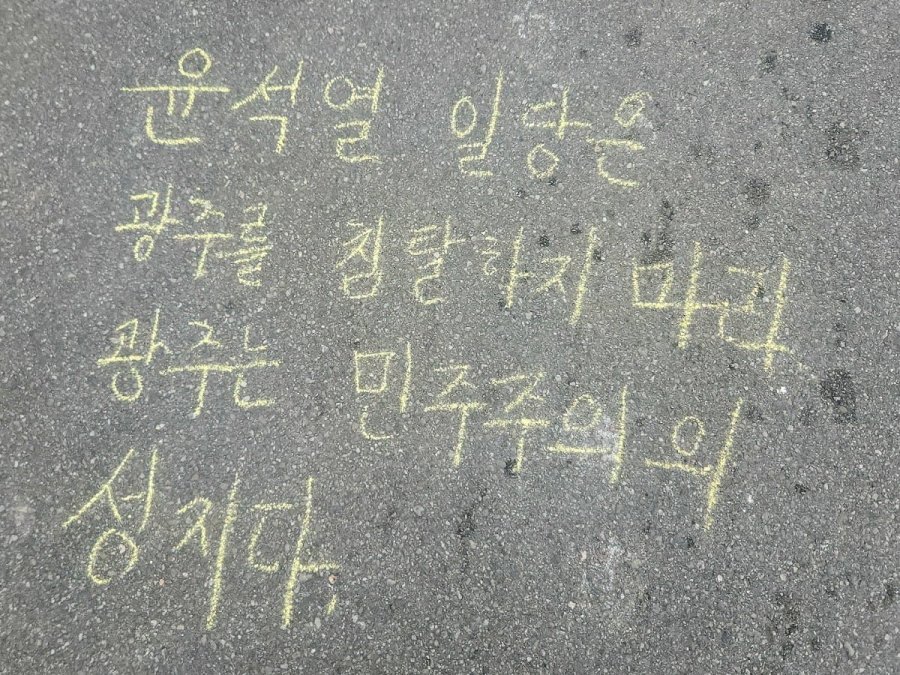 윤석열 일당은
광주를 침탈하지 마라
광주는 민주주의의
성지다.